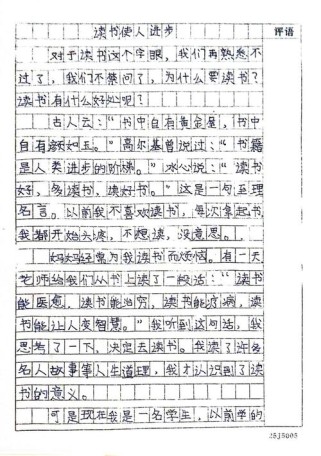 读书使人进步
评语
对于读书这个字眼，我们再熟悉不
过了，我们不禁问了，为什么要读书？
读书有什么好处呢？
古人云：“书中自有黄金屋，书中
自有颜如玉。”高尔基曾说过：“书籍
是人类进步的阶梯。”冰心说：“读书
好，多读书，读好书。”这是一句至理
名言。以前我不喜欢读书，每次拿起书
我都开始头疼，不想读，没意思。
妈妈经常为我读书而烦恼。有一天
老师给我们从书上读了一段话：“读书
能医愈，读书能治穷，读书能疗病，读
书能让人变智慧。”我听到这句话，我
思考了一下，决定去读书。我读了许多
名人故事等人生道理，我才认识到了读
书的意义。
可是现在我是一名学生，以前学的